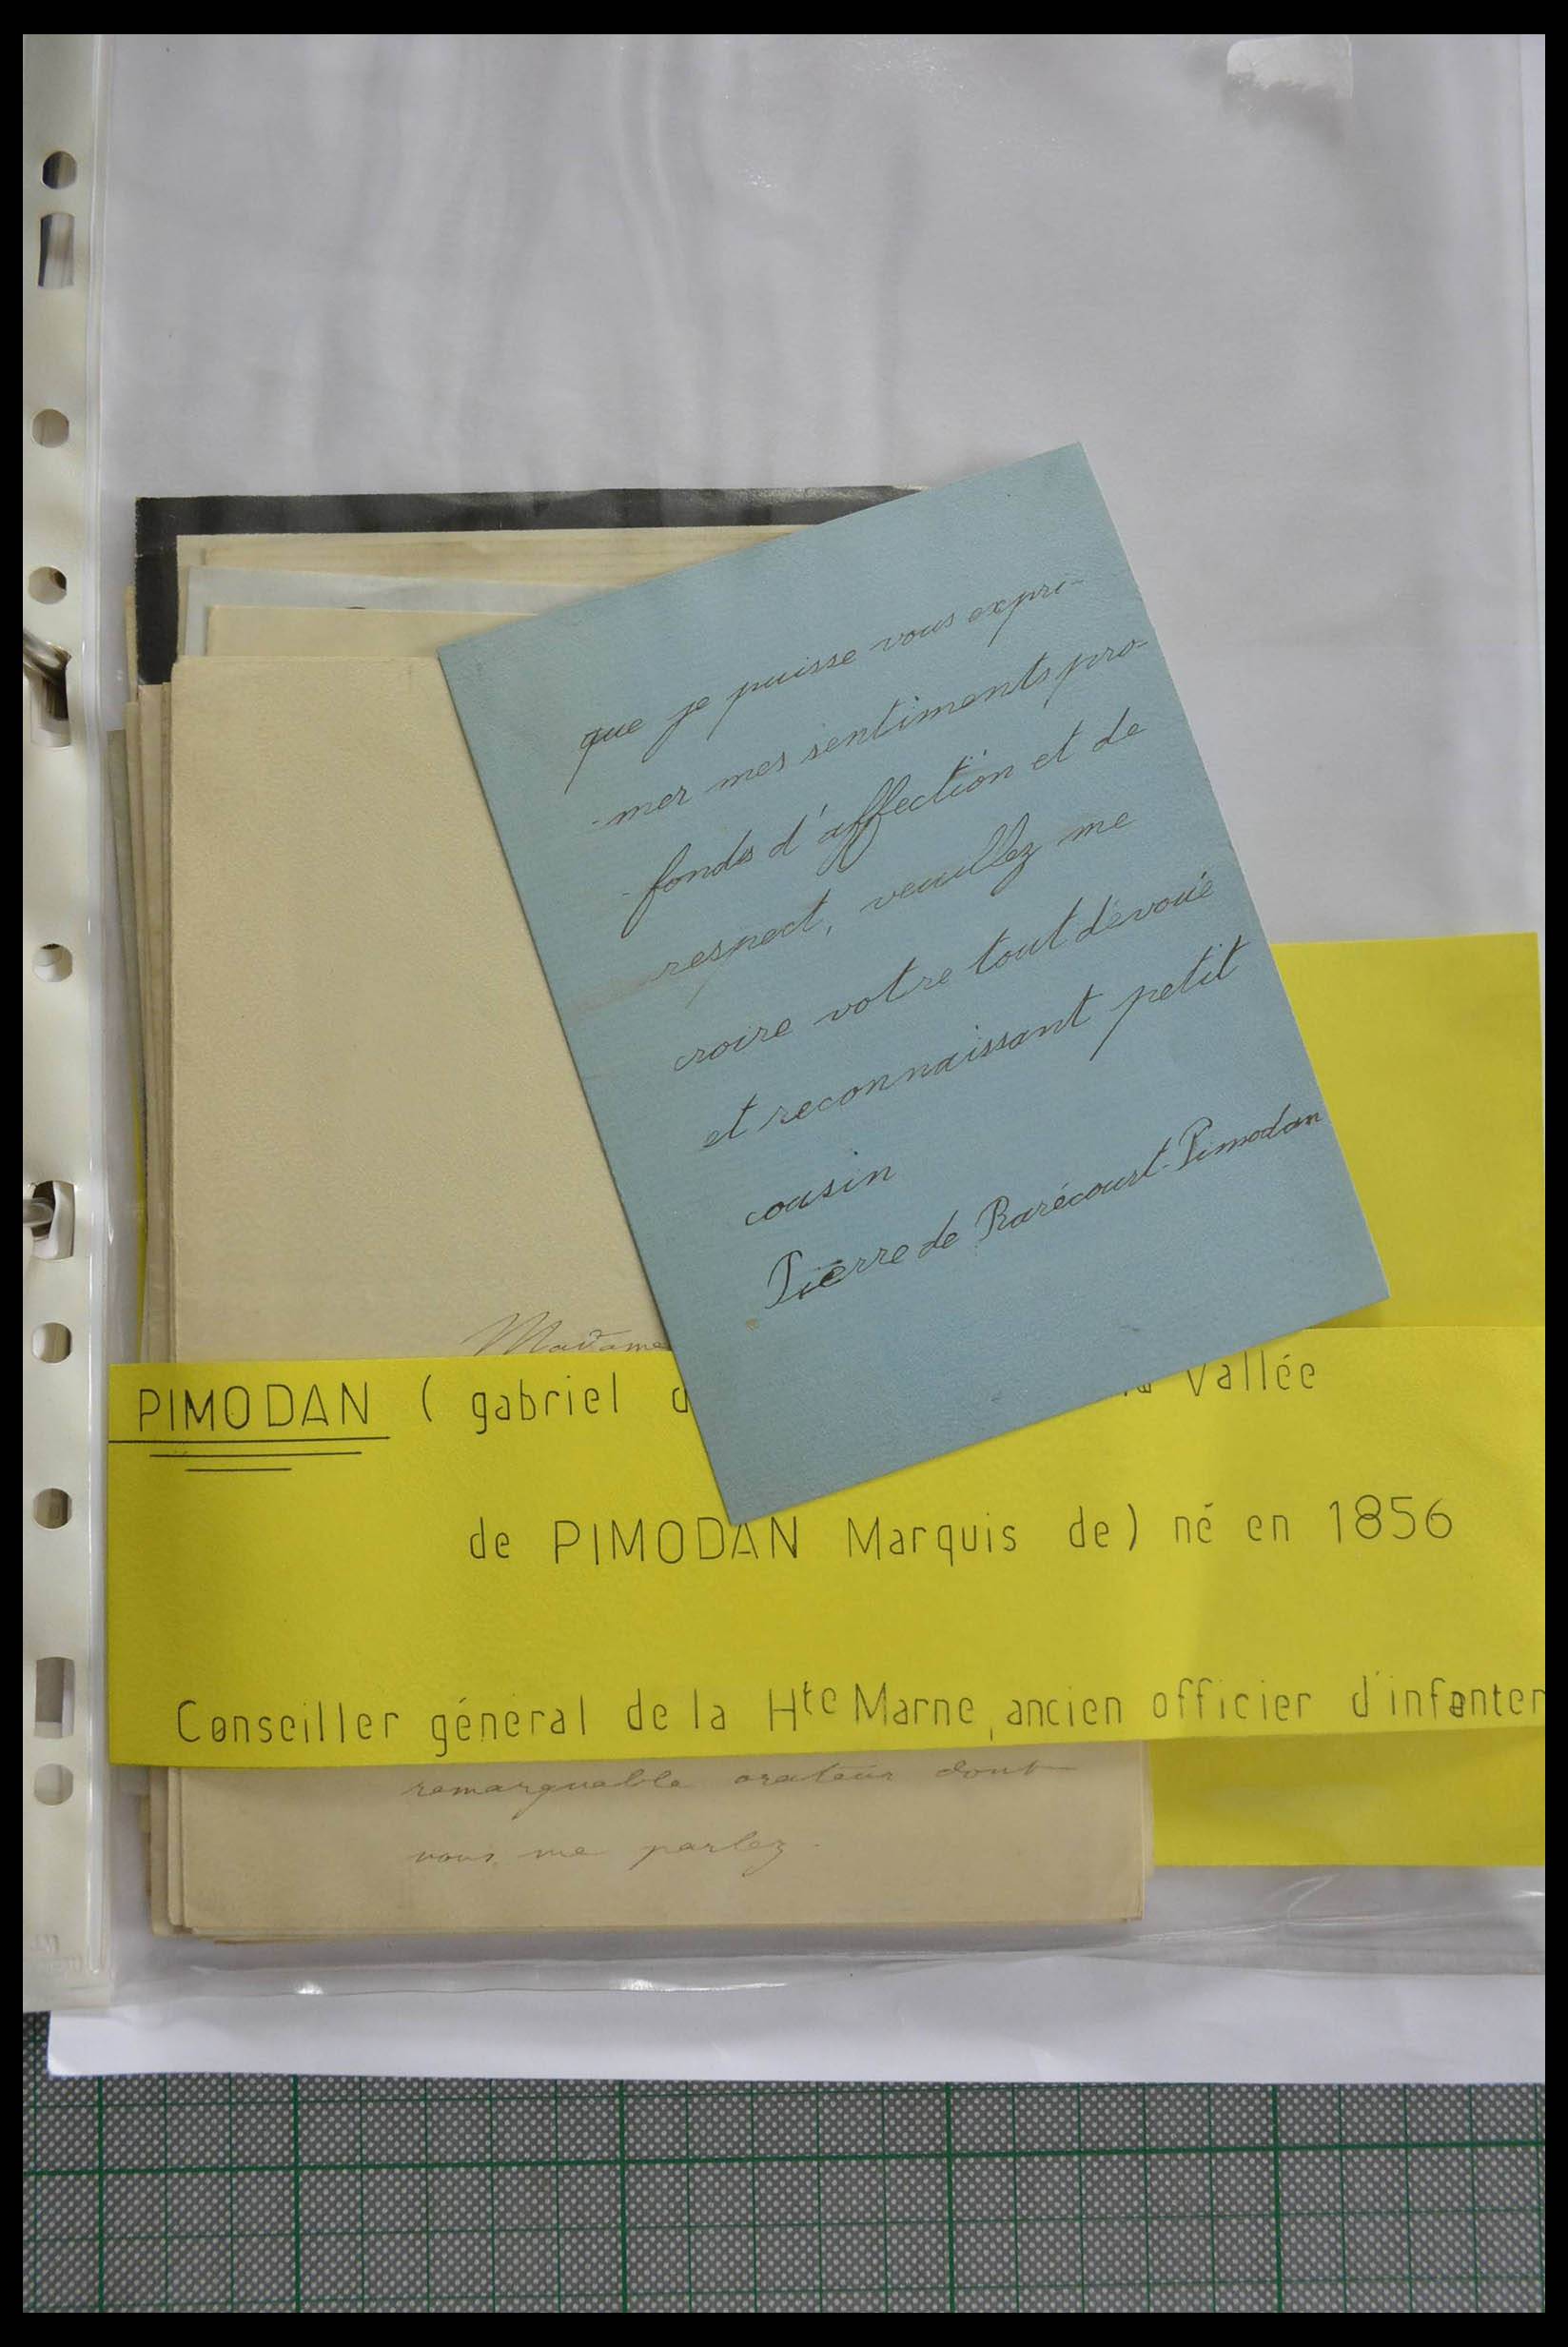 que je puisse vous expri-
-mer mes sentiments pro-
-fonds d'affection et de
respect, veuillez me
croire votre tout dévoué
et reconnaissant petit
cousin
Pierre de Rarécourt-Pimodan
Madame
PIMODAN ( gabriel d la Vallée
de PIMODAN Marquis de) né en 1856
Conseiller général de la Hte Marne, ancien officier d'infanter
remarquable orateur dont
vous me parlez.